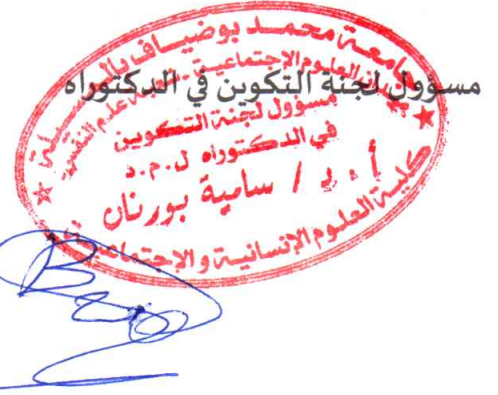 مسؤول لجنة التكوين في الدكتوراه
جامعة محمد بوضياف بالمسيلة
كلية العلوم الإنسانية والاجتماعية
مسؤول لجنة التكوين
في الدكتوراه ل.م.د
أ.د / سامية بورنان